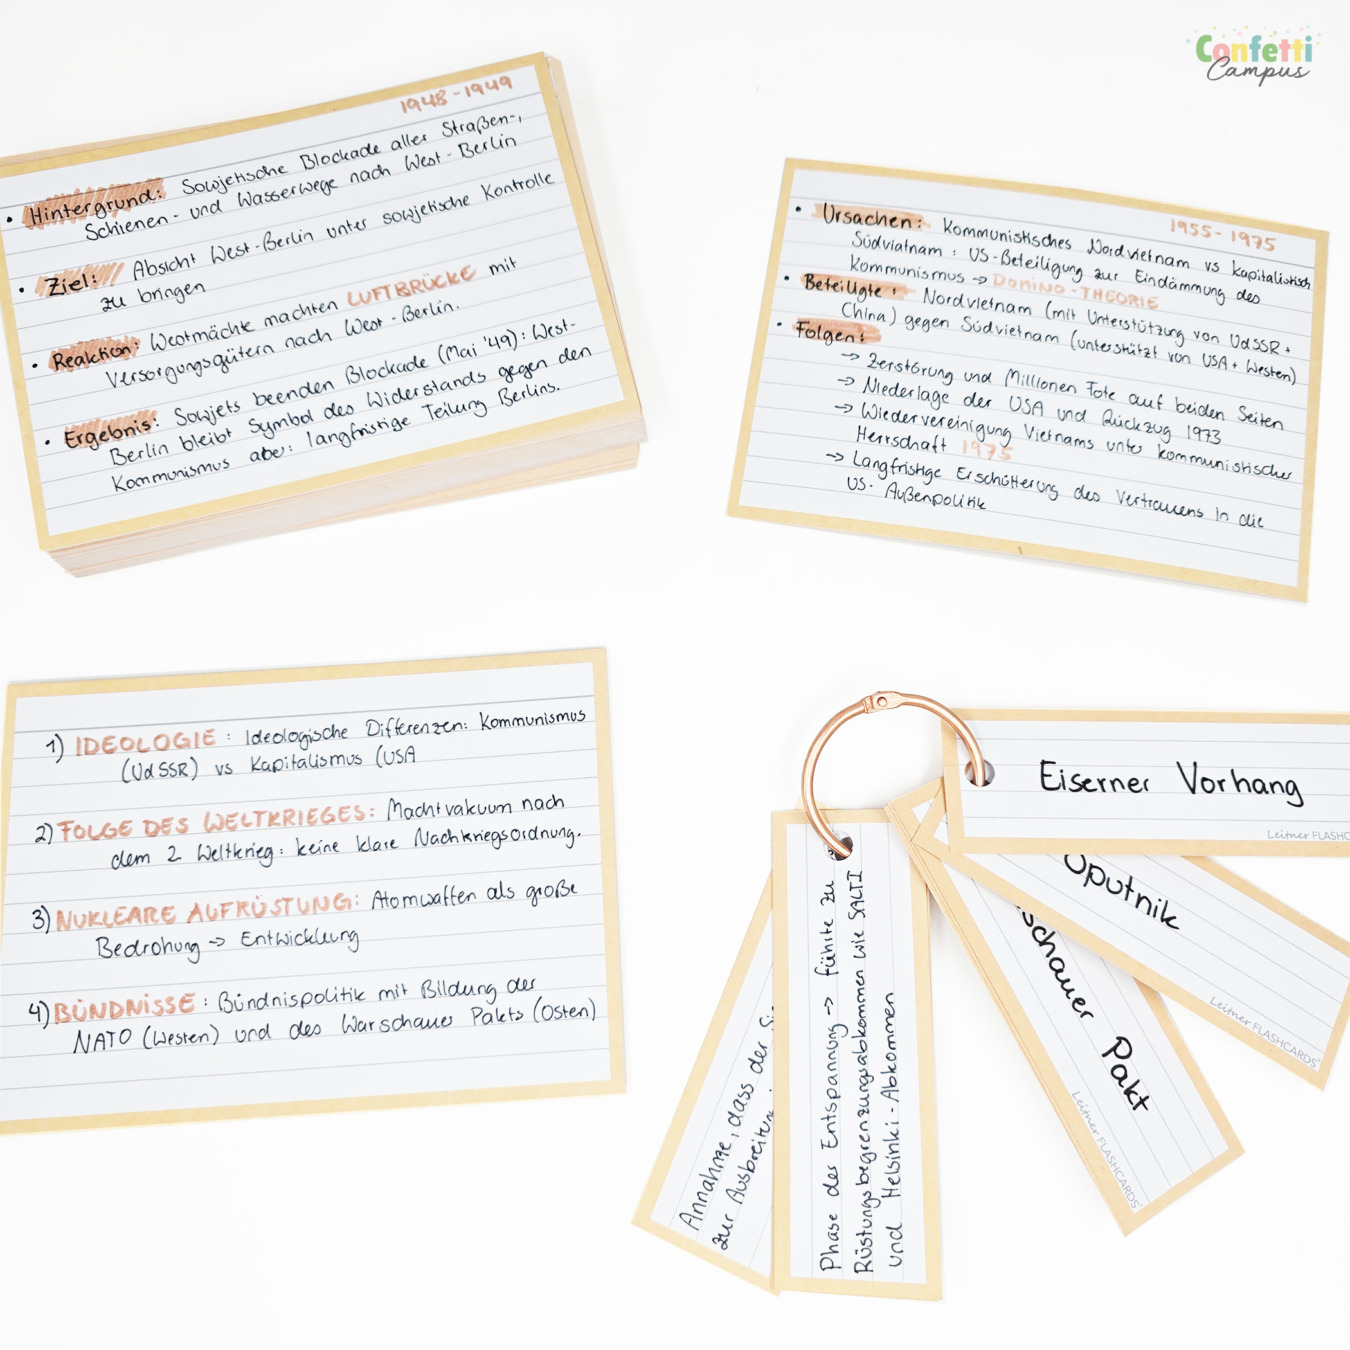 Confetti
Campus
1948-1949
• Hintergrund: Sowjetische Blockade aller Straßen-,
Schienen- und Wasserwege nach West-Berlin
• Ziel: Absicht West-Berlin unter sowjetische Kontrolle
zu bringen
• Reaktion: Westmächte machten LUFTBRÜCKE mit
Versorgungsgütern nach West-Berlin.
• Ergebnis: Sowjets beenden Blockade (Mai '49): West-
Berlin bleibt Symbol des Widerstands gegen den
Kommunismus aber: langfristige Teilung Berlins.
1955-1975
• Ursachen: Kommunistisches Nordvietnam vs kapitalistisch
Südviatnam: US-Beteiligung zur Eindämmung des
Kommunismus -> DOMINO-THEORIE
• Beteiligte: Nordvietnam (mit Unterstützung von UdSSR +
China) gegen Südvietnam (unterstützt von USA + Westen)
• Folgen:
-> Zerstörung und Millionen Tote auf beiden Seiten
-> Niederlage der USA und Rückzug 1973
-> Wiedervereinigung Vietnams unter kommunistischer
Herrschaft 1975
-> Langfristige Erschütterung des Vertrauens in die
US-Außenpolitik
1) IDEOLOGIE: Ideologische Differenzen: Kommunismus
(UdSSR) vs Kapitalismus (USA
2) FOLGE DES WELTKRIEGES: Machtvakuum nach
dem 2. Weltkrieg: keine klare Nachkriegsordnung.
3) NUKLEARE AUFRÜSTUNG: Atomwaffen als große
Bedrohung -> Entwicklung
4) BÜNDNISSE: Bündnispolitik mit Bildung der
NATO (Westen) und des Warschauer Pakts (Osten)
Eiserner Vorhang
Leitner FLASHC
Sputnik
Leitner FLASHCARDS
schauer Pakt
Leitner FLASHCARDS
Phase der Entspannung -> führte zu
Rüstungsbegrenzungsabkommen wie SALT I
und Helsinki-Abkommen
Annahme, dass der
zur Ausbreitun